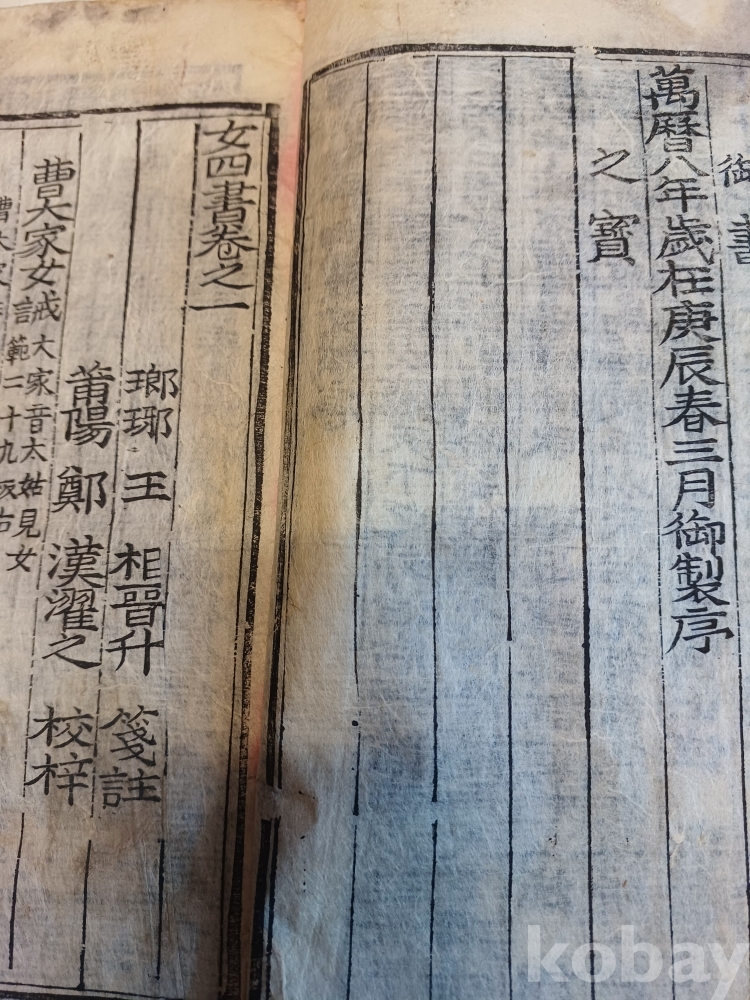 御書
萬曆八年歲在庚辰春三月御製序
之寶
女四書卷之一
瑯琊 王 相晋升 箋註
莆陽 鄭 漢濯之 校梓
曹大家女誡 大家音太姑見女
誌範二十九
曹大家
kobay